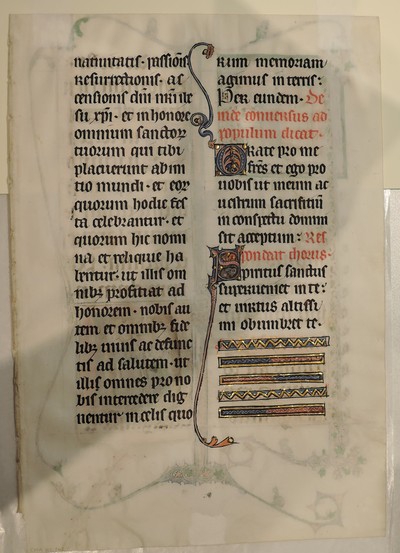 natiuitatis · passiõis
resurrectionis · as
censionis dñi nr̃i ihe
su xp̃i · et in honore
omnium sanctoꝝ
tuorum qui tibi
placuerunt ab ini
tio mundi · et eoꝝ
quorum hodie fes
ta celebrantur · et
quorum hic nomi
na et reliquie ha
bentur · ut illis om
nibꝫ proficiat ad
honorem · nobis au
tem et omnibꝫ fide
libꝫ uiuis ac defunc
tis ad salutem · ut
illis omnes pro no
bis intercedere dig
nentur in celis quo
rum memoriam
agimus in terris :
Per eundem · De
inde conuersus ad
populum dicat ·
Orate pro me
fr̃es et ego pro
uobis ut meum ac
uestrum sacrificiũ
in conspectu domini
sit acceptum : Res
pondeat chorus ·
Spiritus sanctus
superueniet in te :
et uirtus altissi
mi obumbret te ·